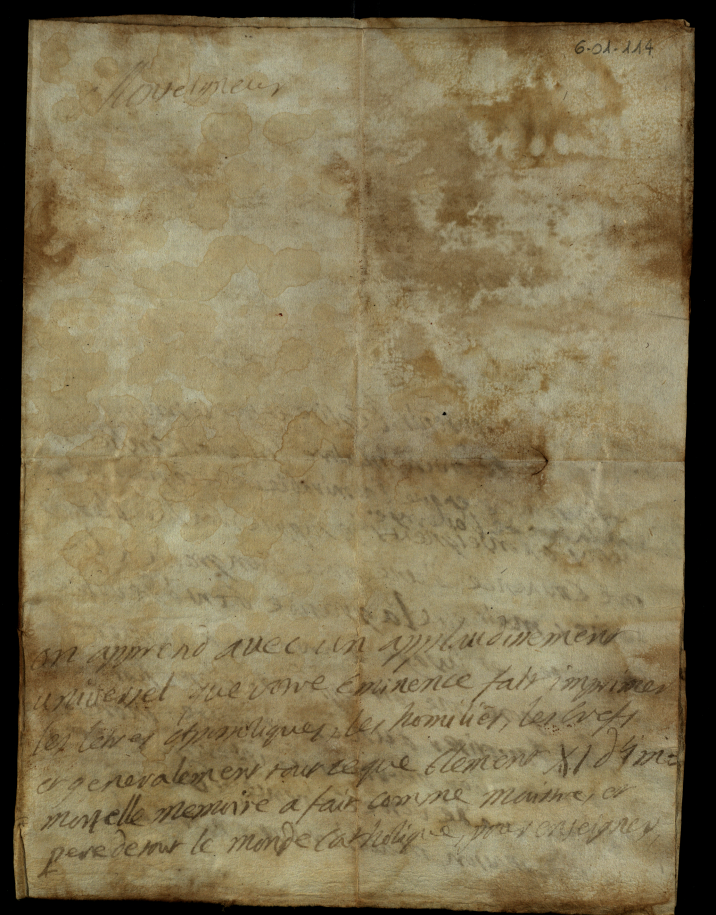 6-01-114
Monseigneur
on apprend avec un applaudissement
universel que votre Eminence fait imprimer
les letres apostoliques, les homilies, les brefs
et generalement tout ce que Clement XI d'im=
mortelle memoire a fait comme maitre, et
pere de tout le monde catholique, pour enseigner,